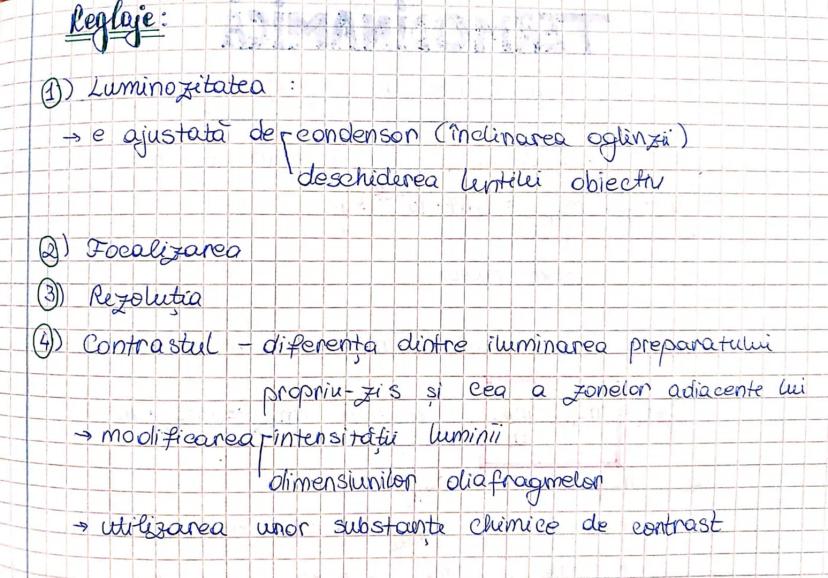 Reglaje:
1) Luminozitatea :
→ e ajustată de condensor (înclinarea oglinzii)
deschiderea lentilei obiectiv
2) Focalizarea
3) Rezoluția
4) Contrastul - diferența dintre iluminarea preparatului
propriu-zis și cea a zonelor adiacente lui
→ modificarea intensității luminii
dimensiunilor diafragmelor
→ utilizarea unor substanțe chimice de contrast